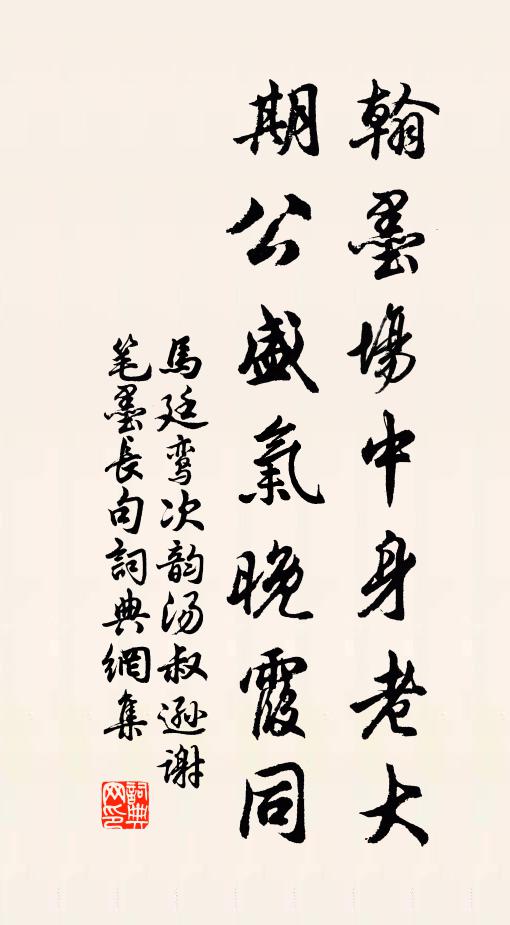 翰墨場中身老大
期公盛氣晚霞同
馬廷鸾次韵汤叔遜謝
笔墨長句詞典網集
詞典网印